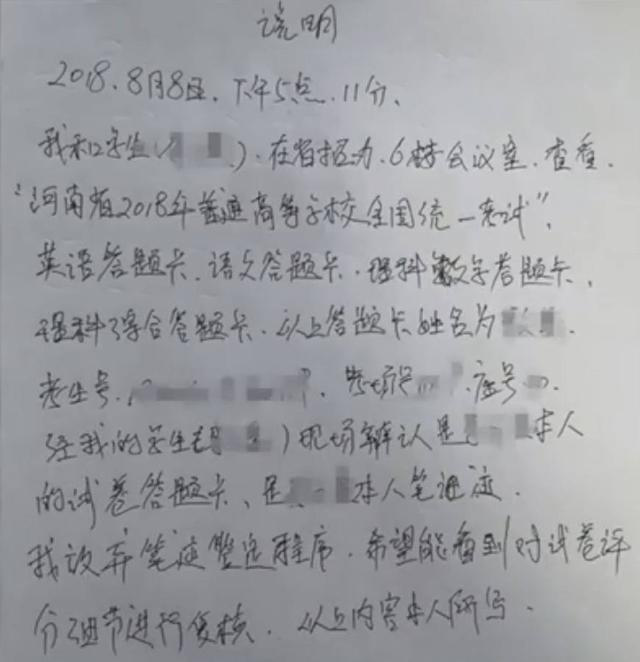 说明
2018.8月8日.下午5点.11分、
我和学生(  ).在省招办.6楼会议室.查看.
"河南省2018年普通高等学校全国统一考试"、
英语答题卡.语文答题卡.理科数学答题卡、
理科综合答题卡.以上答题卡姓名为
考生号.    考场号   .座号
经我的学生(  )现场辨认是  本人
的试卷答题卡、是  本人笔迹.
我放弃笔迹鉴定程序.希望能看到对试卷评
分细节进行复核. 以上内容本人所写.